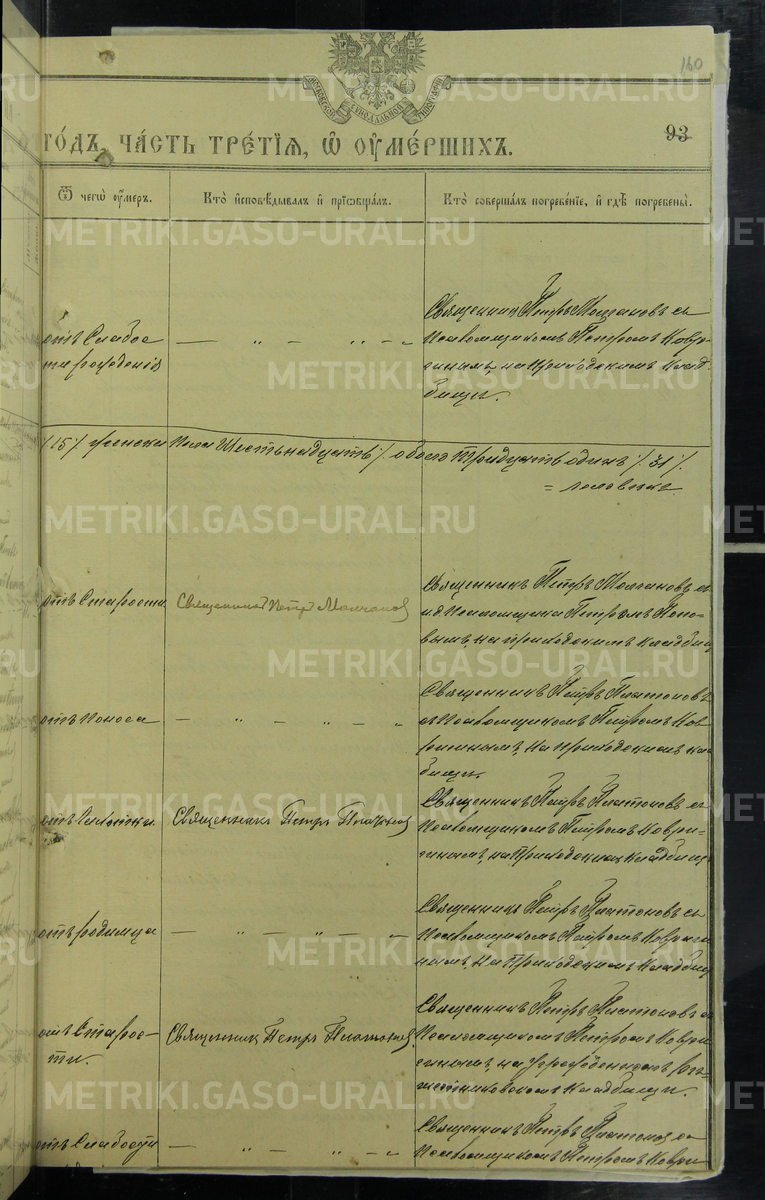 160
93
МОСКОВСКОЙ СѴНОДАЛЬНОЙ ТИПОГРАФІИ
ГО́ДЪ, ЧА́СТЬ ТРЕ́ТІЯ, Ѿ ОУМЕ́РШИХЪ.
Ѿ чегѡ̀ оу҆́меръ.
Кто̀ и҆сповѣ́дывалъ и҆ прїѡбща́лъ.
Кто̀ соверша́лъ погребе́нїе, и҆ гдѣ̀ погребены̀.
отъ слабос
ти рожденія
— „ — „ — „
Священникъ Петръ Молчановъ съ
Псаломщикомъ Петромъ Коври-
гинымъ, на Приходскомъ клад-
бищѣ.
/15/ женска пола Шестьнадцать /. обоего Тридцать одинъ /. 31 /.
= человѣка
отъ Старости
Священникъ Петръ Молчановъ
Священникъ Петръ Молчановъ съ
Псаломщика Петромъ Попо-
вымъ, на приходскомъ кладбищ
отъ поноса
— „ — „ — „
Священникъ Петръ Платоновъ
съ Псаломщикомъ Петромъ Ков-
ригинымъ, на приходскомъ кла
бищѣ.
Священникъ Петръ Платоновъ
Священникъ Петръ Платоновъ съ
Псаломщикомъ Петромъ Коври-
гинымъ, на Приходскомъ кладбищ
отъ родимца
— „ — „ — „
Священникъ Петръ Платоновъ съ
Псаломщикомъ Петромъ Ковриги
нымъ, на Приходскомъ кладбищ
отъ Старос-
ти.
Священник Петръ Платоновъ
Священникъ Петръ Платоновъ съ
Псаломщикомъ Петромъ Коври
гинымъ, на
кладбищѣ.
отъ Слабости
— „ — „ — „
Священникъ Петръ Платоновъ съ
Псаломщикомъ Петромъ Коври
METRIKI.GASO-URAL.RU